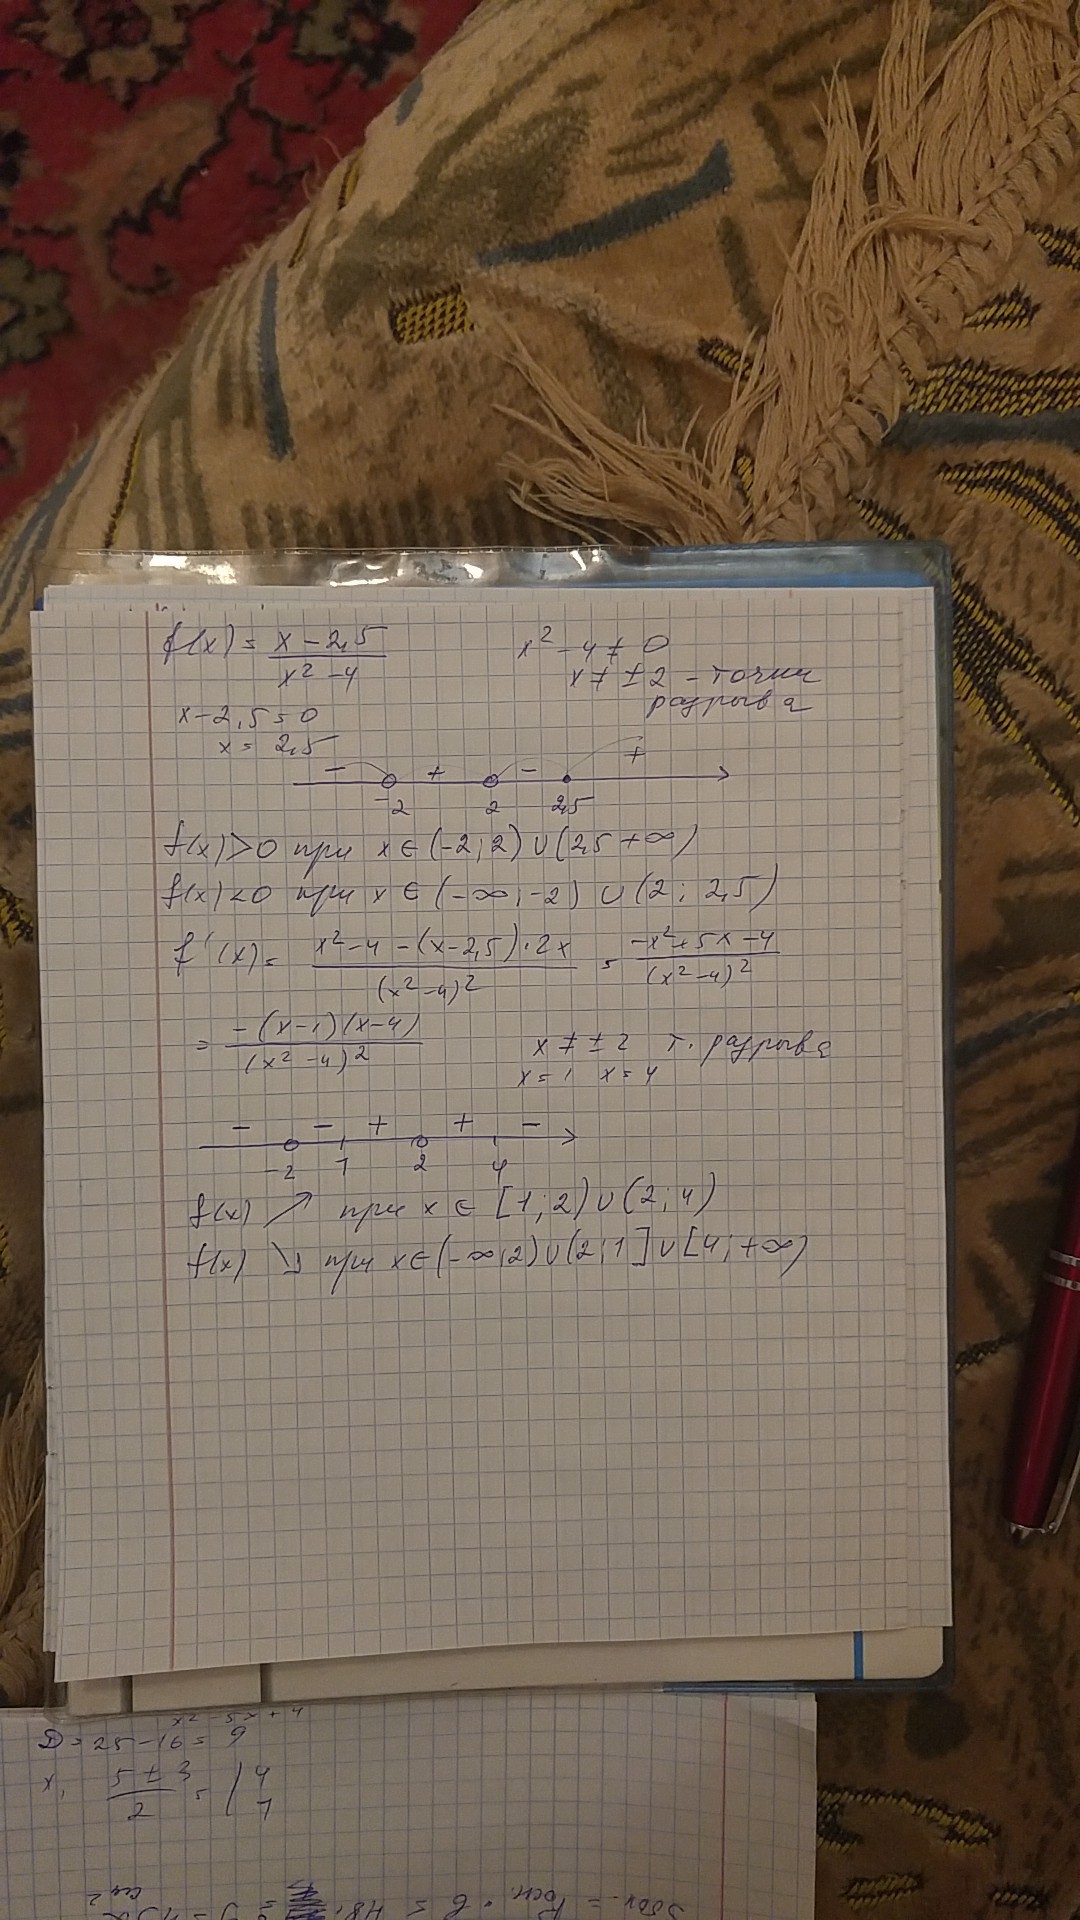 f(x) = (x – 2,5)/(x² – 4)
x² – 4 ≠ 0
x ≠ ±2 – точки
разрыва
x – 2,5 = 0
x = 2,5
– + – +
-2 2 2,5
f(x) > 0 при x ∈ (-2; 2) ∪ (2,5 +∞)
f(x) < 0 при x ∈ (-∞; -2) ∪ (2; 2,5)
f'(x) = (x² – 4 – (x – 2,5) · 2x)/(x² – 4)² = (-x² + 5x – 4)/(x² – 4)²
= (-(x – 1)(x – 4))/(x² – 4)²
x ≠ ±2 т. разрыва
x = 1 x = 4
– – + + –
-2 1 2 4
f(x) ↗ при x ∈ [1; 2) ∪ (2; 4)
f(x) ↘ при x ∈ (-∞; 2) ∪ (2; 1] ∪ [4; +∞)
x² – 5x + 4
D = 25 – 16 = 9
x, (5 ± 3)/2 = 4
1